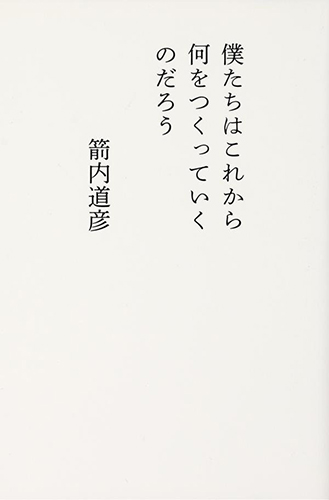 僕たちはこれから
何をつくっていく
のだろう
箭内道彦